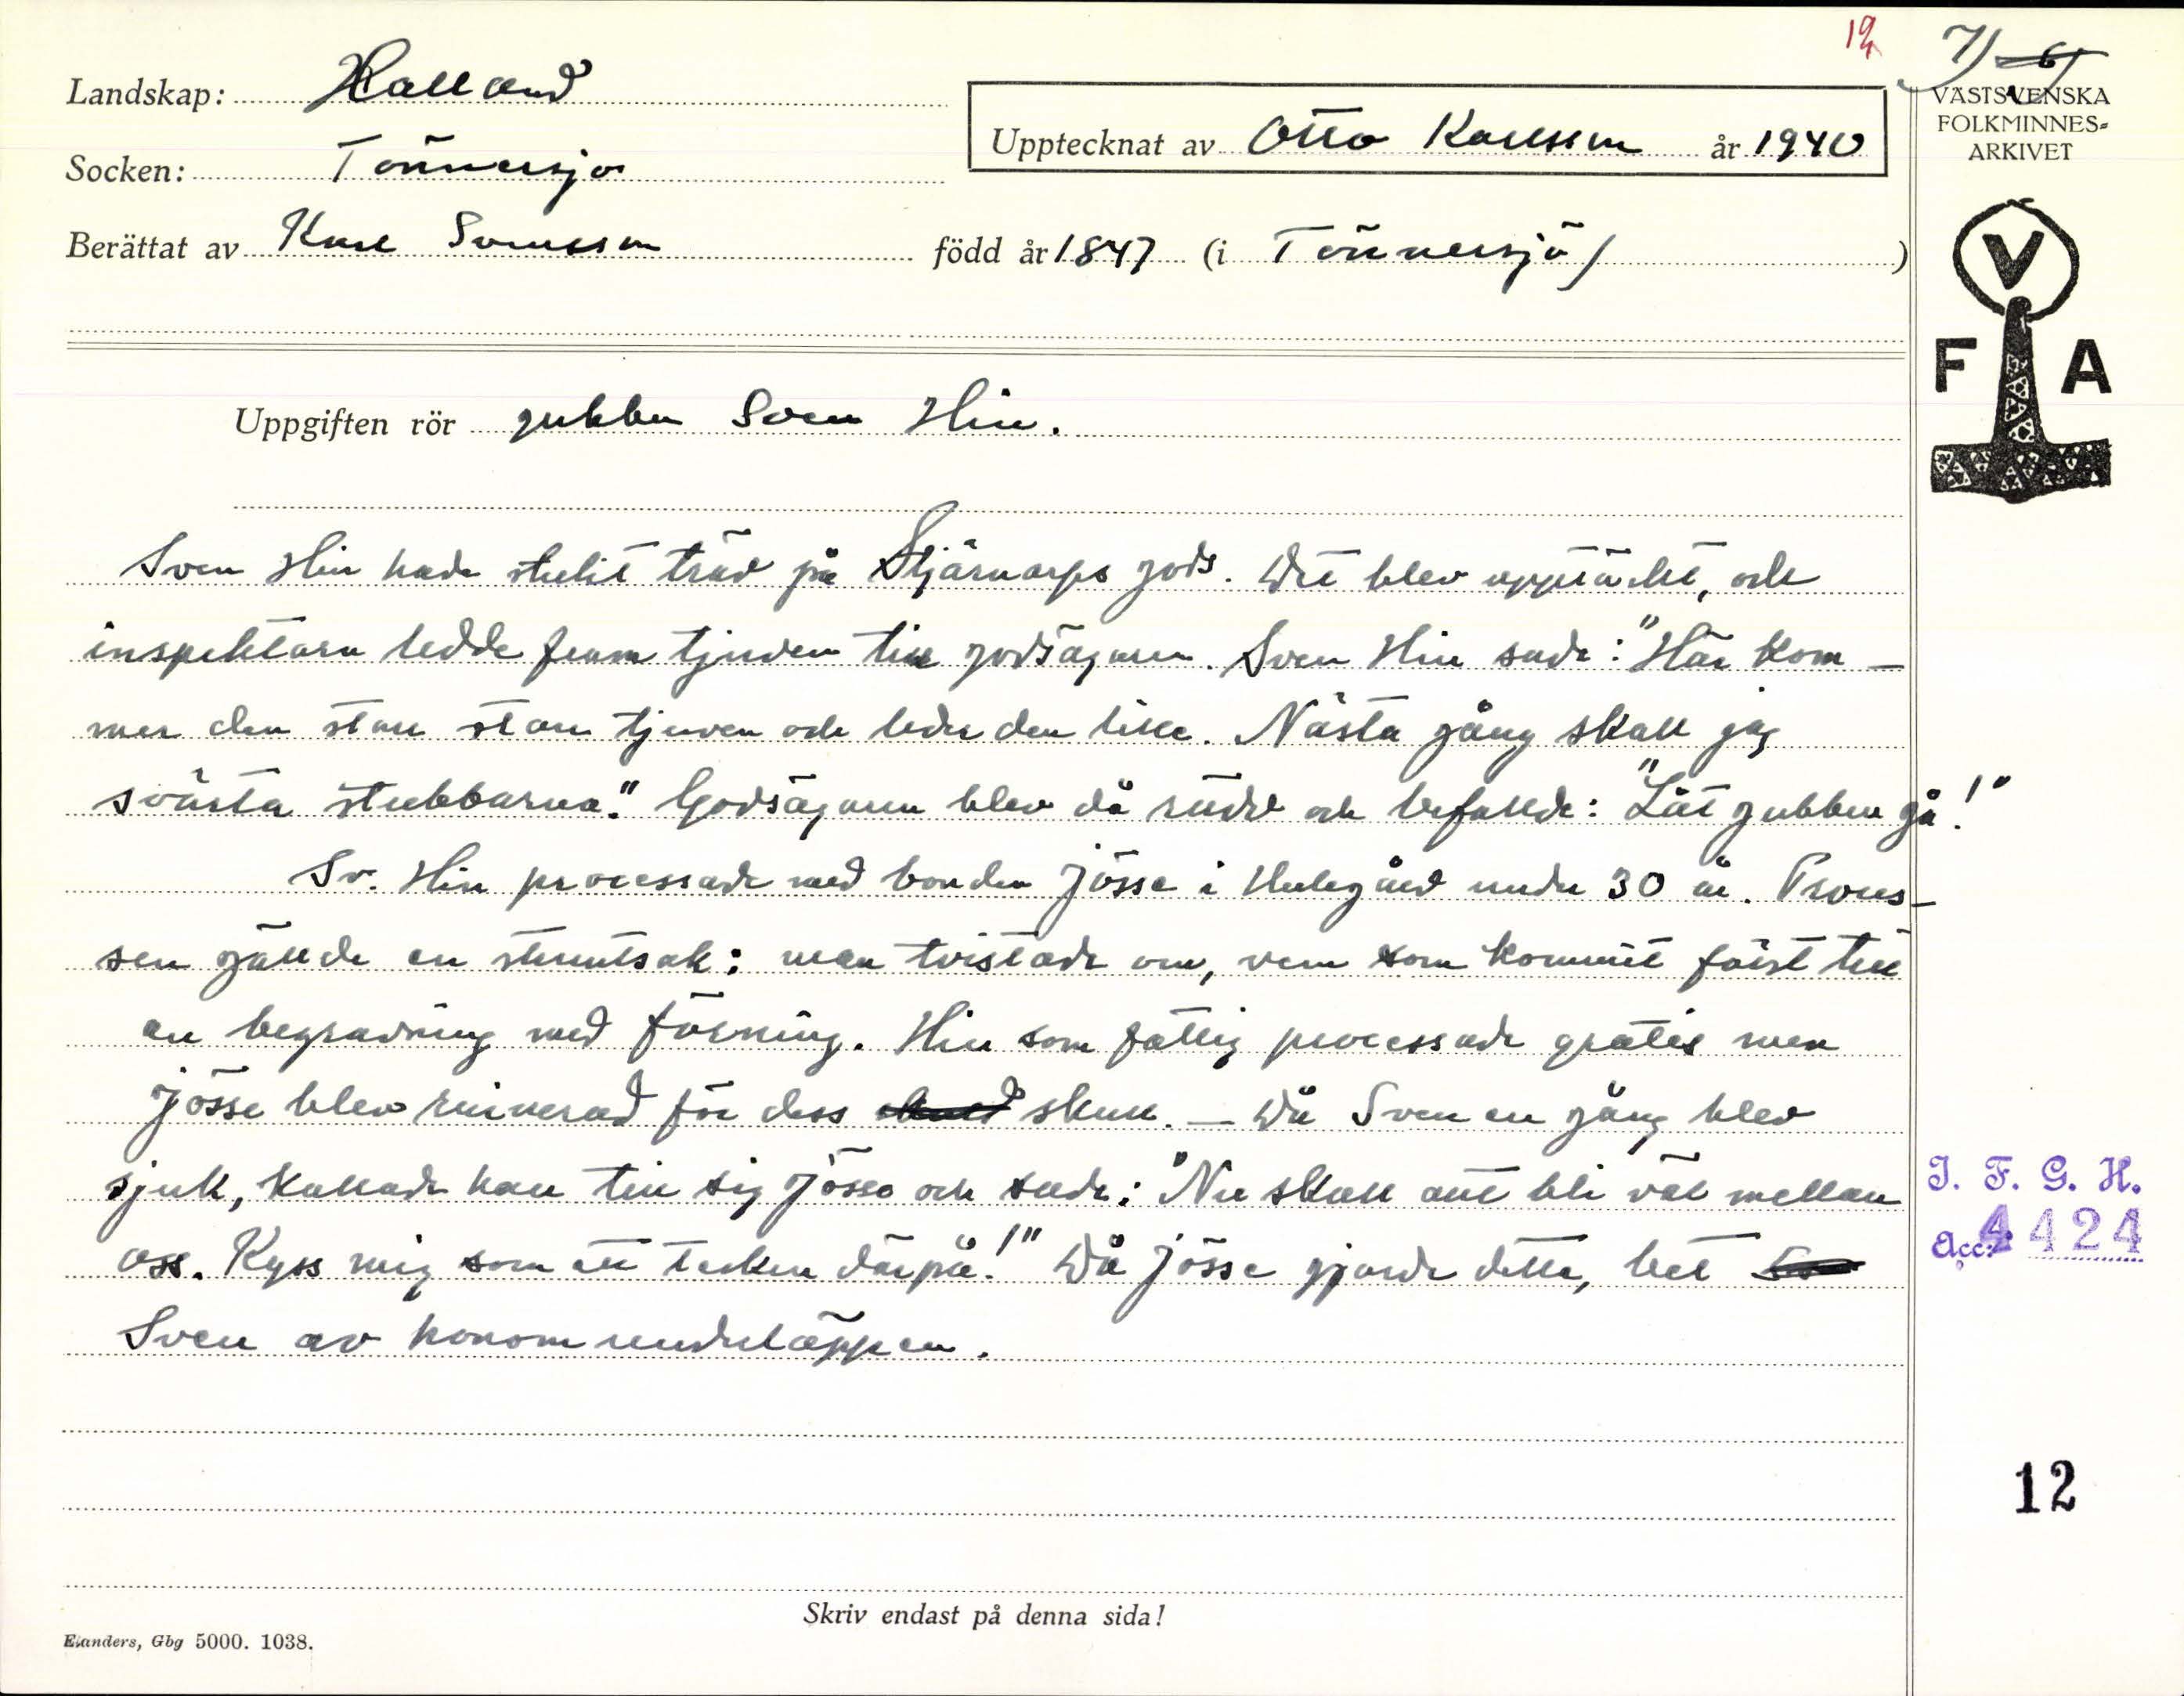 12
7) 6)
Landskap: Halland
Upptecknat av Otto Karlsson år 1940
VÄSTSVENSKA
FOLKMINNES-
ARKIVET
Socken: Tönnersjö
Berättat av Karl Svensson född år 1847 (i Tönnersjö)
V
F A
Uppgiften rör gubben Sven Hin.
Sven Hin hade stulit träd på Stjärnarps gods. Det blev upptäckt, och
inspektoren ledde fram tjuven till godsägaren. Sven Hin sade: "Här kom-
mer den store store tjuven och leder den lille. Nästa gång skall jag
svärta stubbarna." Godsägaren blev då rädd och befallde: "Låt gubben gå!"
Sv. Hin processade med bonden Jösse i Hulegård under 30 år. Proces-
sen gällde en struntsak: man tvistade om, vem som kommit först till
en begravning med förning. Hin som fattig processade gratis men
Jösse blev ruinerad för dess skull. - Då Sven en gång blev
sjuk, kallade han till sig Jösse och sade: "Nu skall allt bli väl mellan
oss. Kyss mig som ett tecken därpå!" Då Jösse gjorde detta, bet
Sven av honom underläppen.
I. F. G. H.
Acc: 4424
12
Skriv endast på denna sida!
Elanders, Gbg 5000. 1038.